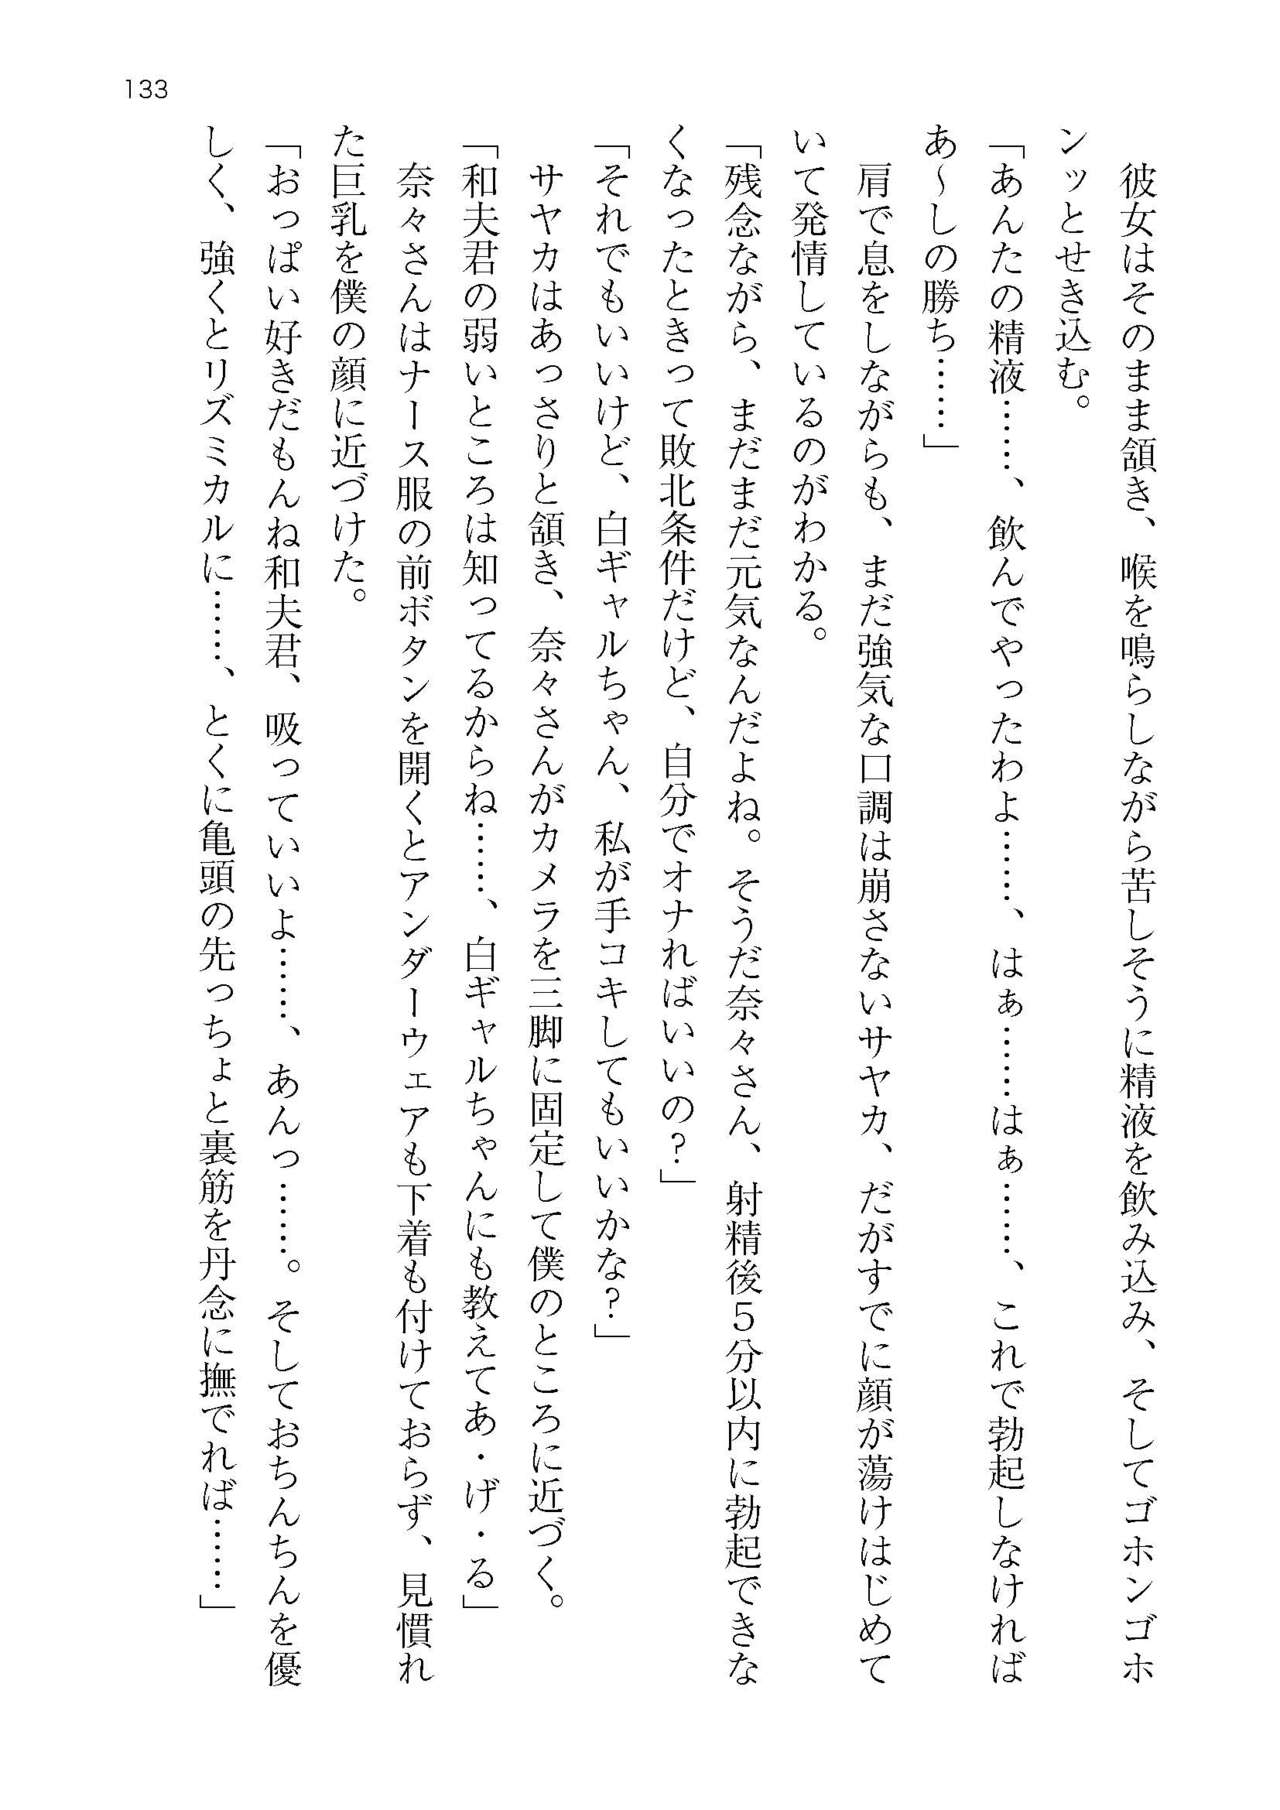 133
彼女はそのまま頷き、喉を鳴らしながら苦しそうに精液を飲み込み、そしてゴホンゴホ
ンッとせき込む。
「あんたの精液……、飲んでやったわよ……、はぁ……はぁ……、これで勃起しなければ
あ～しの勝ち……」
肩で息をしながらも、まだ強気な口調は崩さないサヤカ、だがすでに顔が蕩けはじめて
いて発情しているのがわかる。
「残念ながら、まだまだ元気なんだよね。そうだ奈々さん、射精後５分以内に勃起できな
くなったときって敗北条件だけど、自分でオナればいいの？」
「それでもいいけど、白ギャルちゃん、私が手コキしてもいいかな？」
サヤカはあっさりと頷き、奈々さんがカメラを三脚に固定して僕のところに近づく。
「和夫君の弱いところは知ってるからね……、白ギャルちゃんにも教えてあ・げ・る」
奈々さんはナース服の前ボタンを開くとアンダーウェアも下着も付けておらず、見慣れ
た巨乳を僕の顔に近づけた。
「おっぱい好きだもんね和夫君、吸っていいよ……、あんっ……。そしておちんちんを優
しく、強くとリズミカルに……、とくに亀頭の先っちょと裏筋を丹念に撫でれば……」